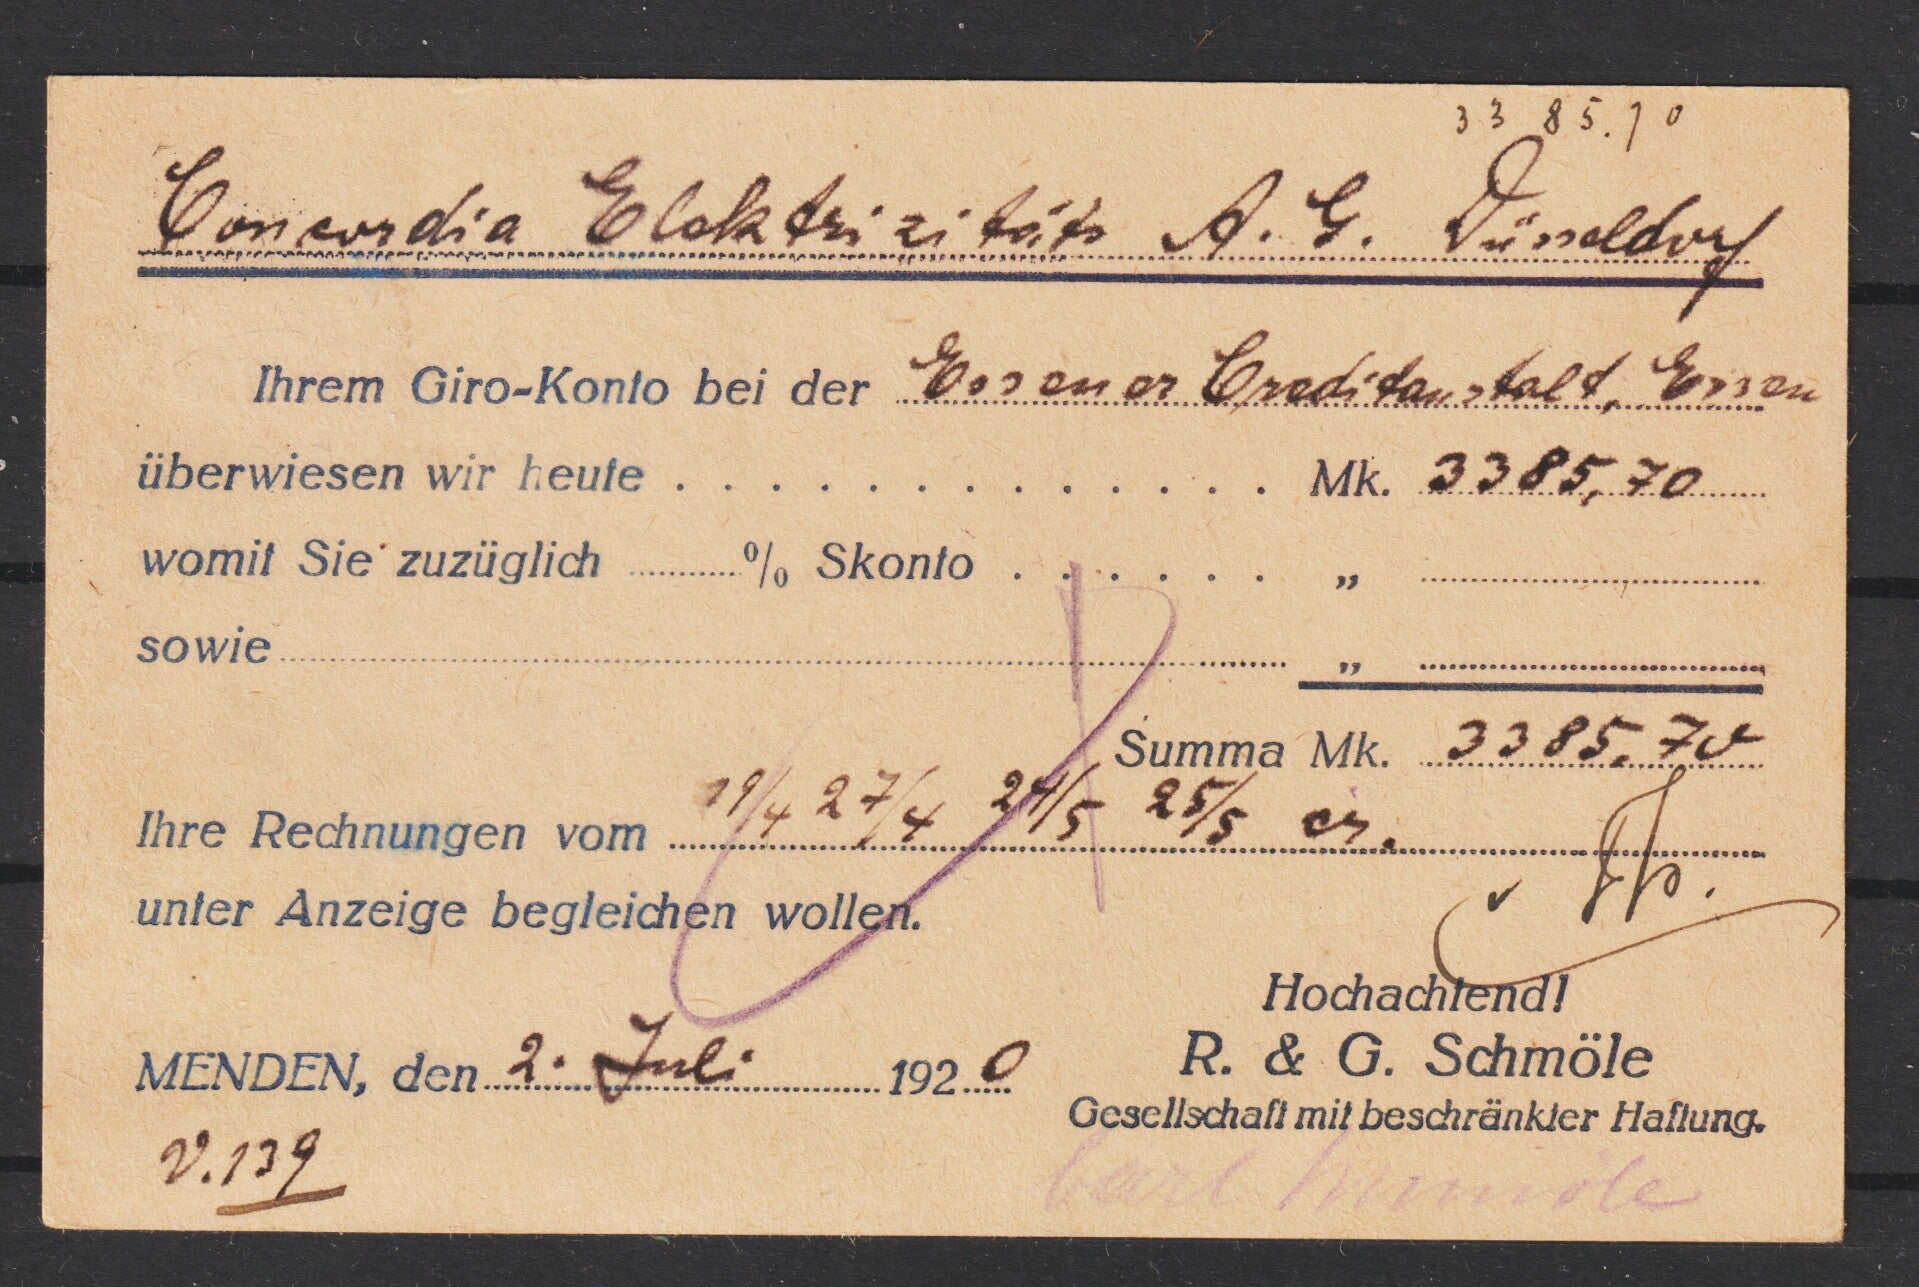 3385.70
Concordia Elektrizitäts A. G. Düsseldorf
Ihrem Giro-Konto bei der Essener Creditanstalt, Essen
überwiesen wir heute . . . . . . . . . . . . . . Mk. 3385,70
womit Sie zuzüglich ..........% Skonto . . . . . . „
sowie „
Summa Mk. 3385,70
Ihre Rechnungen vom 19/4 27/4 24/5 25/5 cr.
unter Anzeige begleichen wollen.
Hochachtend!
MENDEN, den 2. Juli 1920
R. & G. Schmöle
Gesellschaft mit beschränkter Haftung.
V. 139
Carl Schmöle